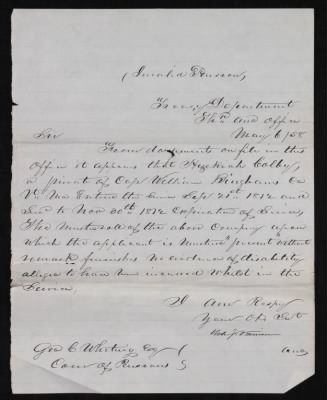 (Invalid Pension)
Treasy Department
Thd Aud offic
May 6/58
Sir
From documents on file in this
Office it appears that Hezekiah Colby,
a private of Cap William Binghams Co
Vt Mil Entered the Serv Sept 21st 1812 and
Servd to Nov 20th 1812 Expiration of Service
The Muster roll of the above Company upon
which the applicant is Musterd present without
remark furnishes no evidence of disability
aleged to have been incurred whilst in the
Service.
I Am Respy
Your Obt Svt
Geo C Whiting Esq (
Comr of Pensions )